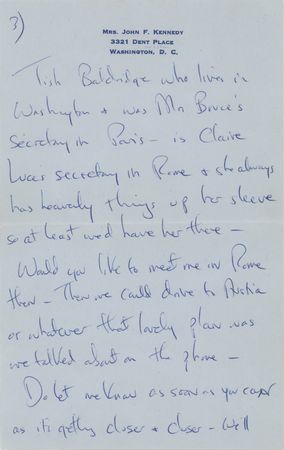 3)
MRS. JOHN F. KENNEDY
3321 DENT PLACE
WASHINGTON, D. C.
Tish Baldridge who lives in
Washington + was Mrs Bruce's
secretary in Paris - is Claire
Luces secretary in Rome + she always
has heavenly things up her sleeve
so at least wed have her there -
Would you like to meet me in Rome
then - Then we could drive to Austria
or whatever that lovely plan was
we talked about on the phone -
Do let me know as soon as you can
as its getting closer + closer - Will